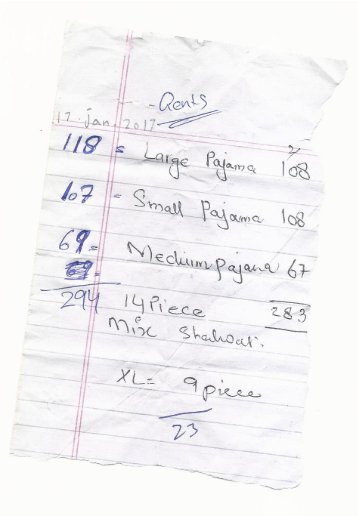 Gents
17. Jan. 2017
118 = Large Pajama 108
107 - Small Pajama 108
69 = Medium pajama 67
294 14 Piece 283
Mix Shalwar.
XL = 9 piece
23